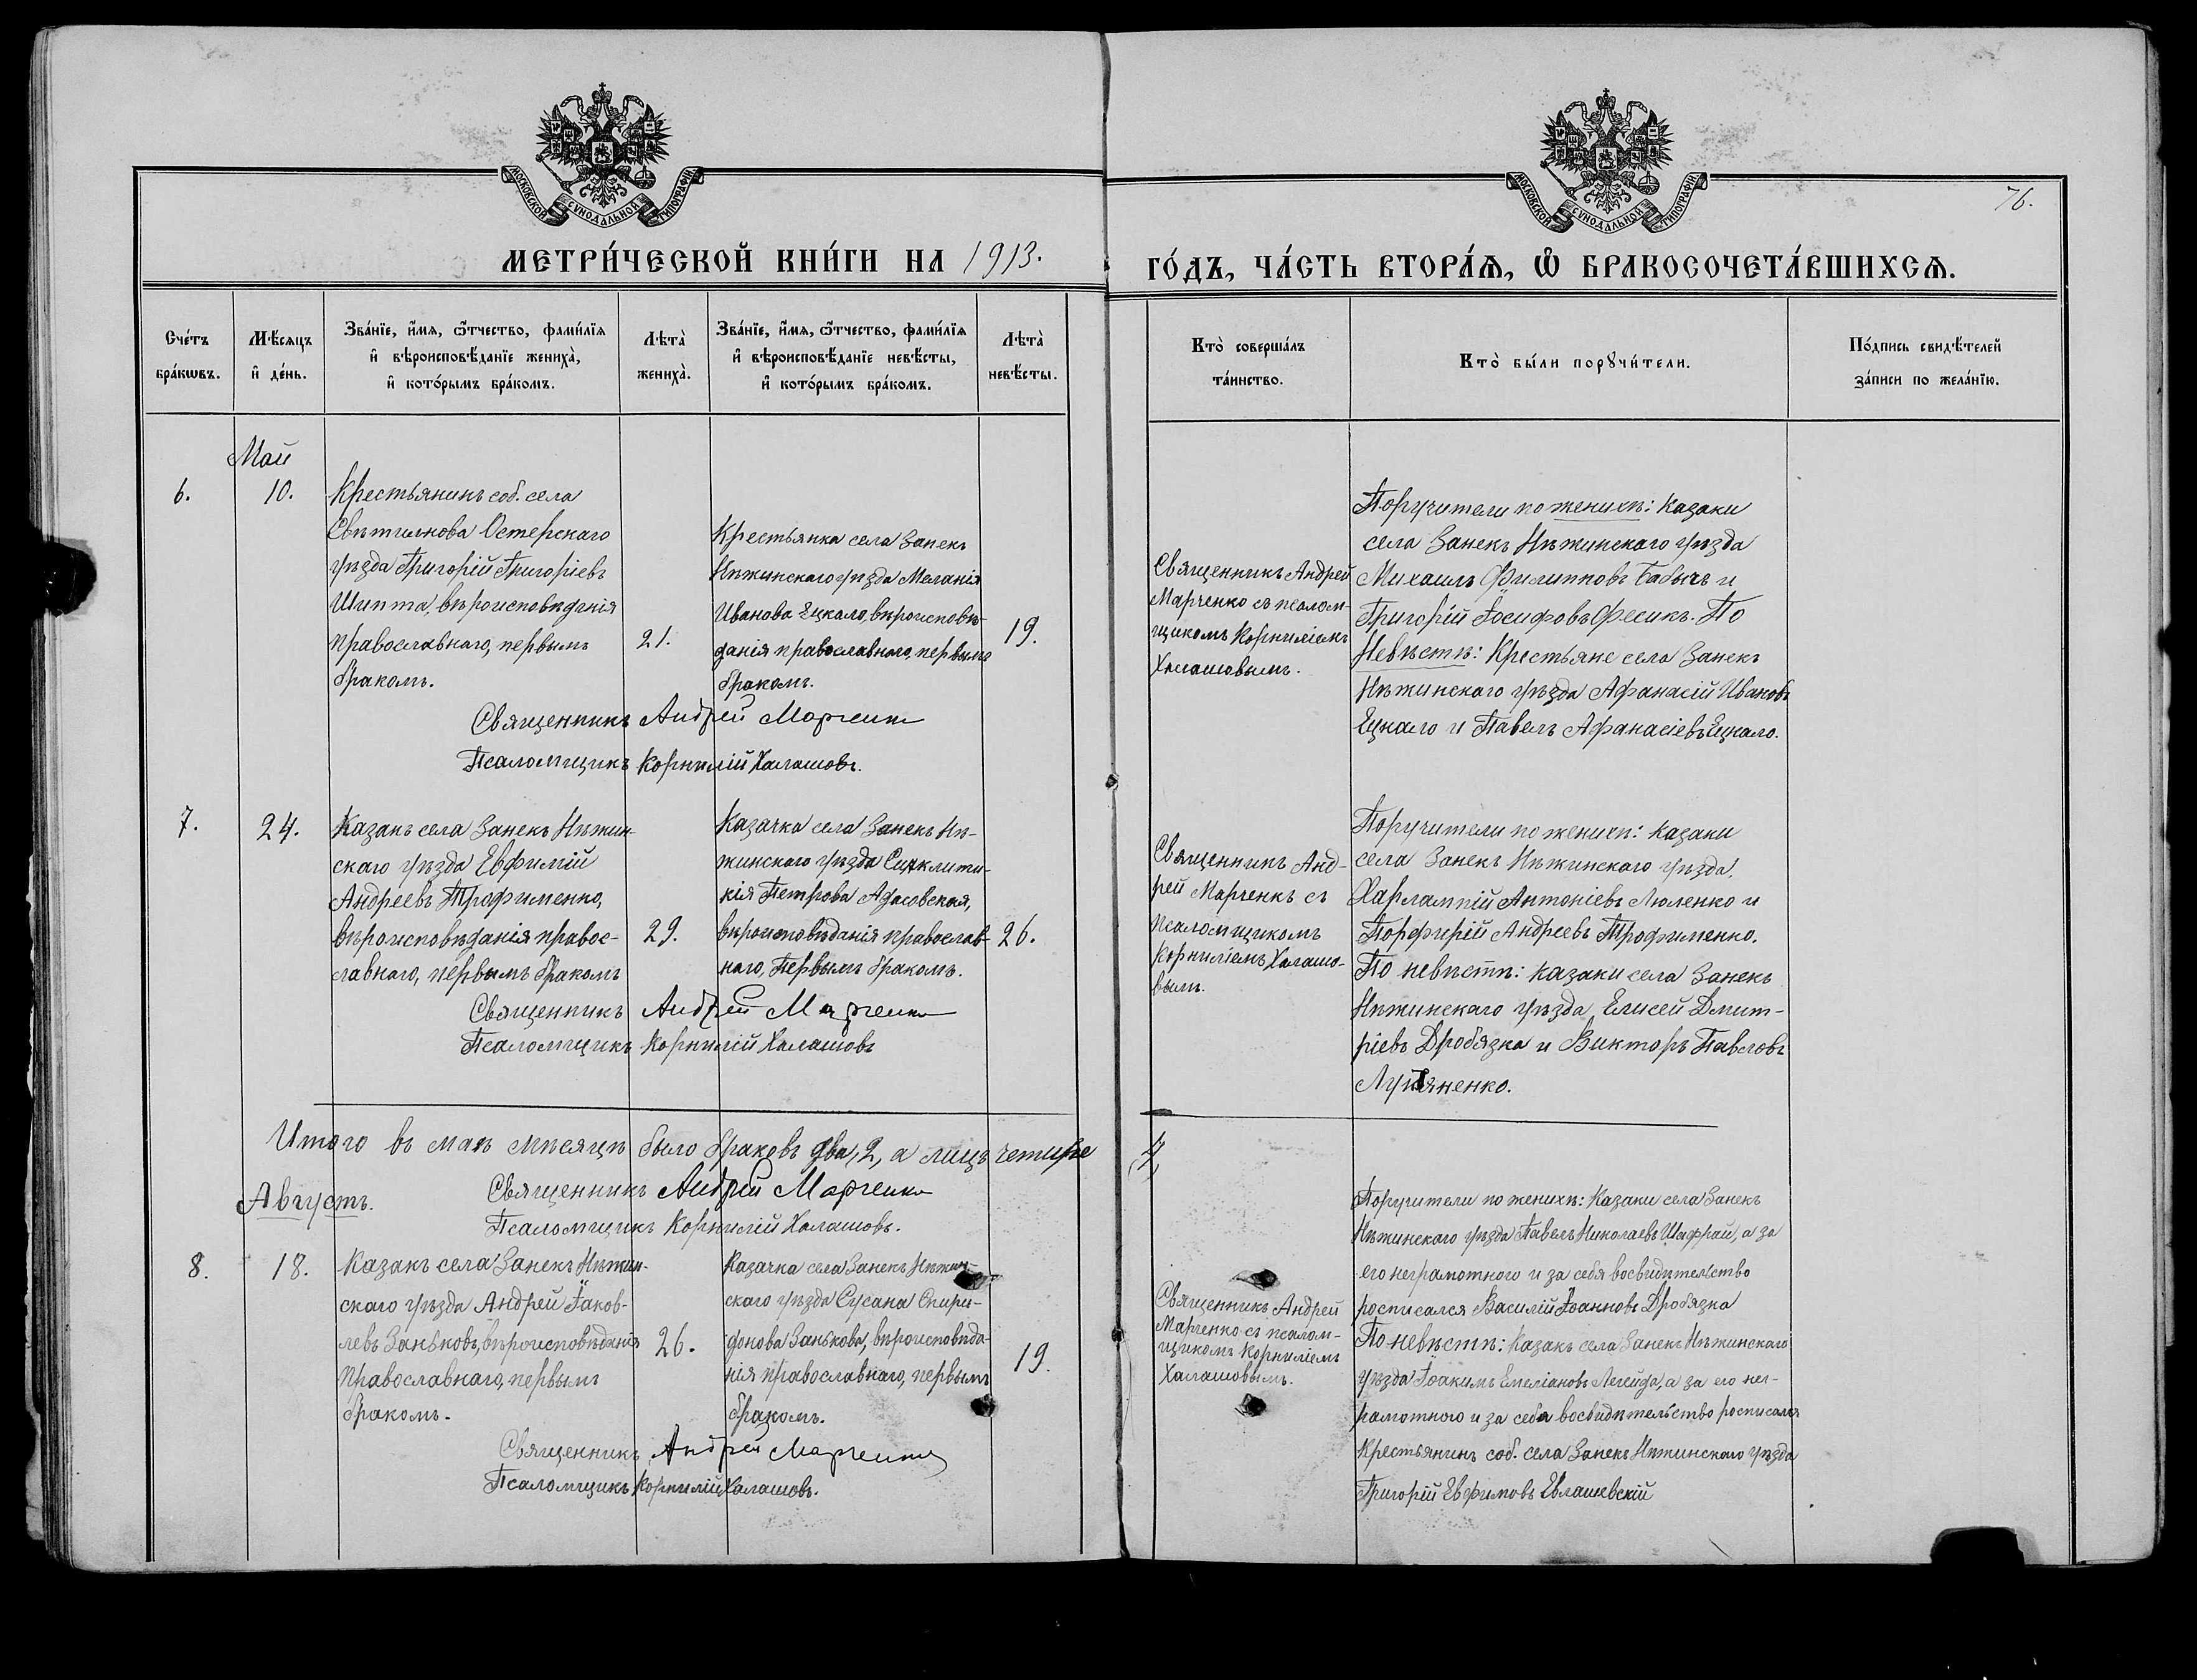 МОСКОВСКОЙ СУНОДАЛЬНОЙ ТИПОГРАФІИ
МОСКОВСКОЙ СУНОДАЛЬНОЙ ТИПОГРАФІИ
76.
МЕТРИ́ЧЕСКОЙ КНИ́ГИ НА 1913.
ГО́ДЪ, ЧА́СТЬ ВТОРА́Ѧ, Ѽ БРАКОСОЧЕТА́ВШИХСѦ.
Сче́тъ
бра́кѡвъ.
Мѣ́сяцъ
и҆ де́нь.
Зва́нїе, и҆́мѧ, ѻ҆́тчество, фами́лїѧ
и҆ вѣроисповѣ́данїе жениха̀,
и҆ кото́рымъ бра́комъ.
Лѣта̀
жениха̀.
Зва́нїе, и҆́мѧ, ѻ҆́тчество, фами́лїѧ
и҆ вѣроисповѣ́данїе невѣ́сты,
и҆ кото́рымъ бра́комъ.
Лѣта̀
невѣ́сты.
Кто̀ соверша́лъ
та́инство.
Кто̀ бы́ли порꙋчи́тели.
По́дпись свидѣ́телей
за́писи по жела́нїю.
Май
6.
10.
Крестьянинъ соб. села
Свѣтильнова Остерскаго
уѣзда Григорій Григоріевъ
Шипта, вѣроисповѣданія
православнаго, первымъ
бракомъ.
21.
Крестьянка села Занекъ
Нѣжинскаго уѣзда Меланія
Иванова Ецкало, вѣроисповѣ-
данія православнаго, первымъ
бракомъ.
19.
Священникъ Андрей Марченко
Псаломщикъ Корнилій Халашовъ.
Священникъ Андрей
Марченко съ псалом-
щикомъ Корниліемъ
Халашовымъ.
Поручители по женихѣ: Казаки
села Занекъ Нѣжинскаго уѣзда
Михаилъ Филипповъ Бабычъ и
Григорій Іосифовъ Фесикъ. По
Невѣстѣ: Крестьяне села Занекъ
Нѣжинскаго уѣзда Афанасій Ивановъ
Ецкало и Павелъ Афанасіевъ Ецкало.
7.
24.
Казакъ села Занекъ Нѣжин-
скаго уѣзда Евфимій
Андреевъ Трофименко,
вѣроисповѣданія правос-
лавнаго, первымъ бракомъ
29.
Казачка села Занекъ Нѣ-
жинскаго уѣзда Синклити-
кія Петрова Адасовская,
вѣроисповѣданія православ-
наго, Первымъ бракомъ.
26.
Священникъ Андрей Марченко
Псаломщикъ Корнилій Халашовъ
Священникъ Анд-
рей Марченкъ съ
псаломщикомъ
Корниліемъ Халашо-
вымъ.
Поручители по женихѣ: казаки
села Занекъ Нѣжинскаго уѣзда,
Харлампій Антоніевъ Люленко и
Порфирій Андреевъ Трофименко.
По невѣстѣ: казаки села Занекъ
Нѣжинскаго уѣзда Елисей Дмит-
ріевъ Дробязка и Викторъ Павловъ
Лукьяненко.
Итого въ маѣ мѣсяцѣ было браковъ два, 2, а лицъ четыре
(4)
Священникъ Андрей Марченко
Псаломщикъ Корнилій Халашовъ.
Августъ.
8.
18.
Казакъ села Занекъ Нѣжин-
скаго уѣзда Андрей Іаков-
левъ Заньковъ, вѣроисповѣданія
Православнаго, первымъ
бракомъ.
26.
Казачка села Занекъ Нѣжин-
скаго уѣзда Сусана Спири-
донова Занькова, вѣроисповѣда-
нія православнаго, первымъ
бракомъ.
19.
Священникъ Андрей Марченко
Псаломщикъ Корнилій Халашовъ.
Священникъ Андрей
Марченко съ псалом-
щикомъ Корниліемъ
Халашовымъ.
Поручители по женихѣ: Казаки села Занекъ
Нѣжинскаго уѣзда Павелъ Николаевъ Шафрай, а за
его неграмотного и за себя восвидѣтельство
росписался Василій Іоанновъ Дробязка
По невѣстѣ: Казакъ села Занекъ Нѣжинскаго
уѣзда Іоакимъ Емеліановъ Легейда, а за его нег-
рамотного и за себя восвидѣтельство росписался
Крестьянинъ соб. села Занекъ Нѣжинскаго уѣзда
Григорій Евфимовъ Евлашевскій